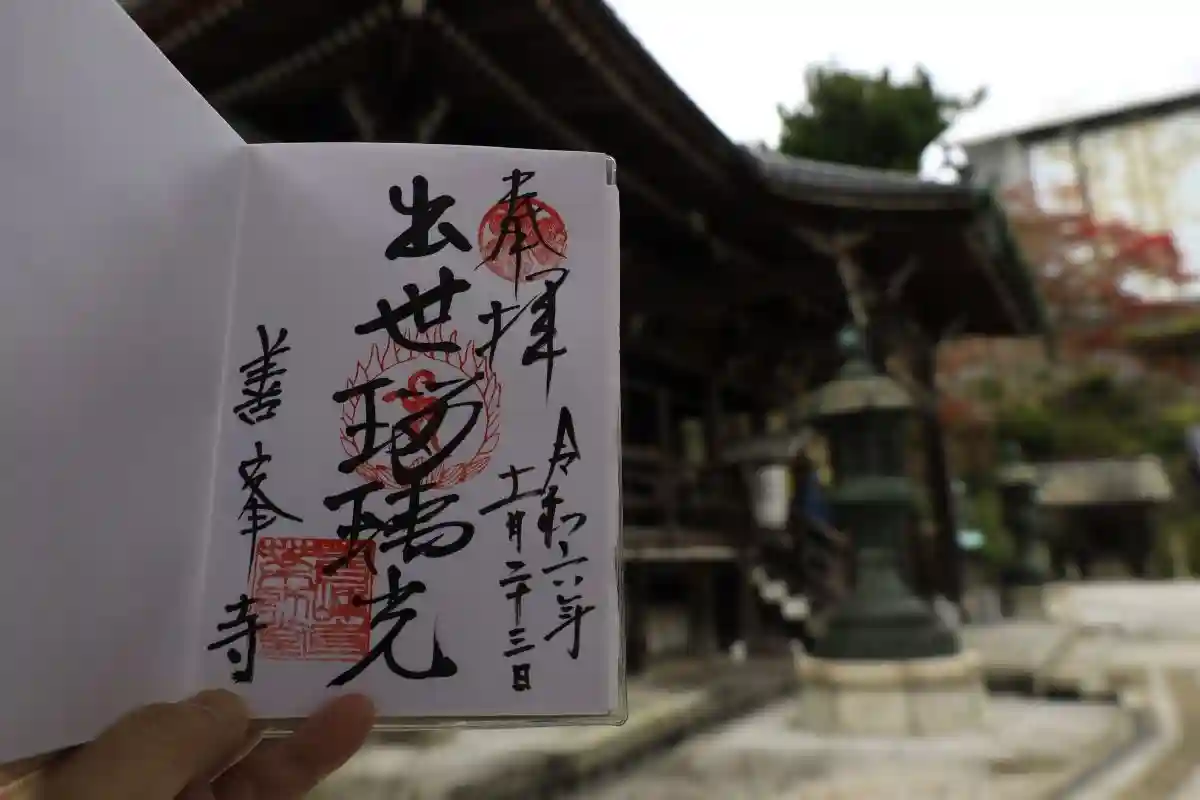 奉拝
令和六年
十一月二十三日
出世瑠璃光
善峯寺